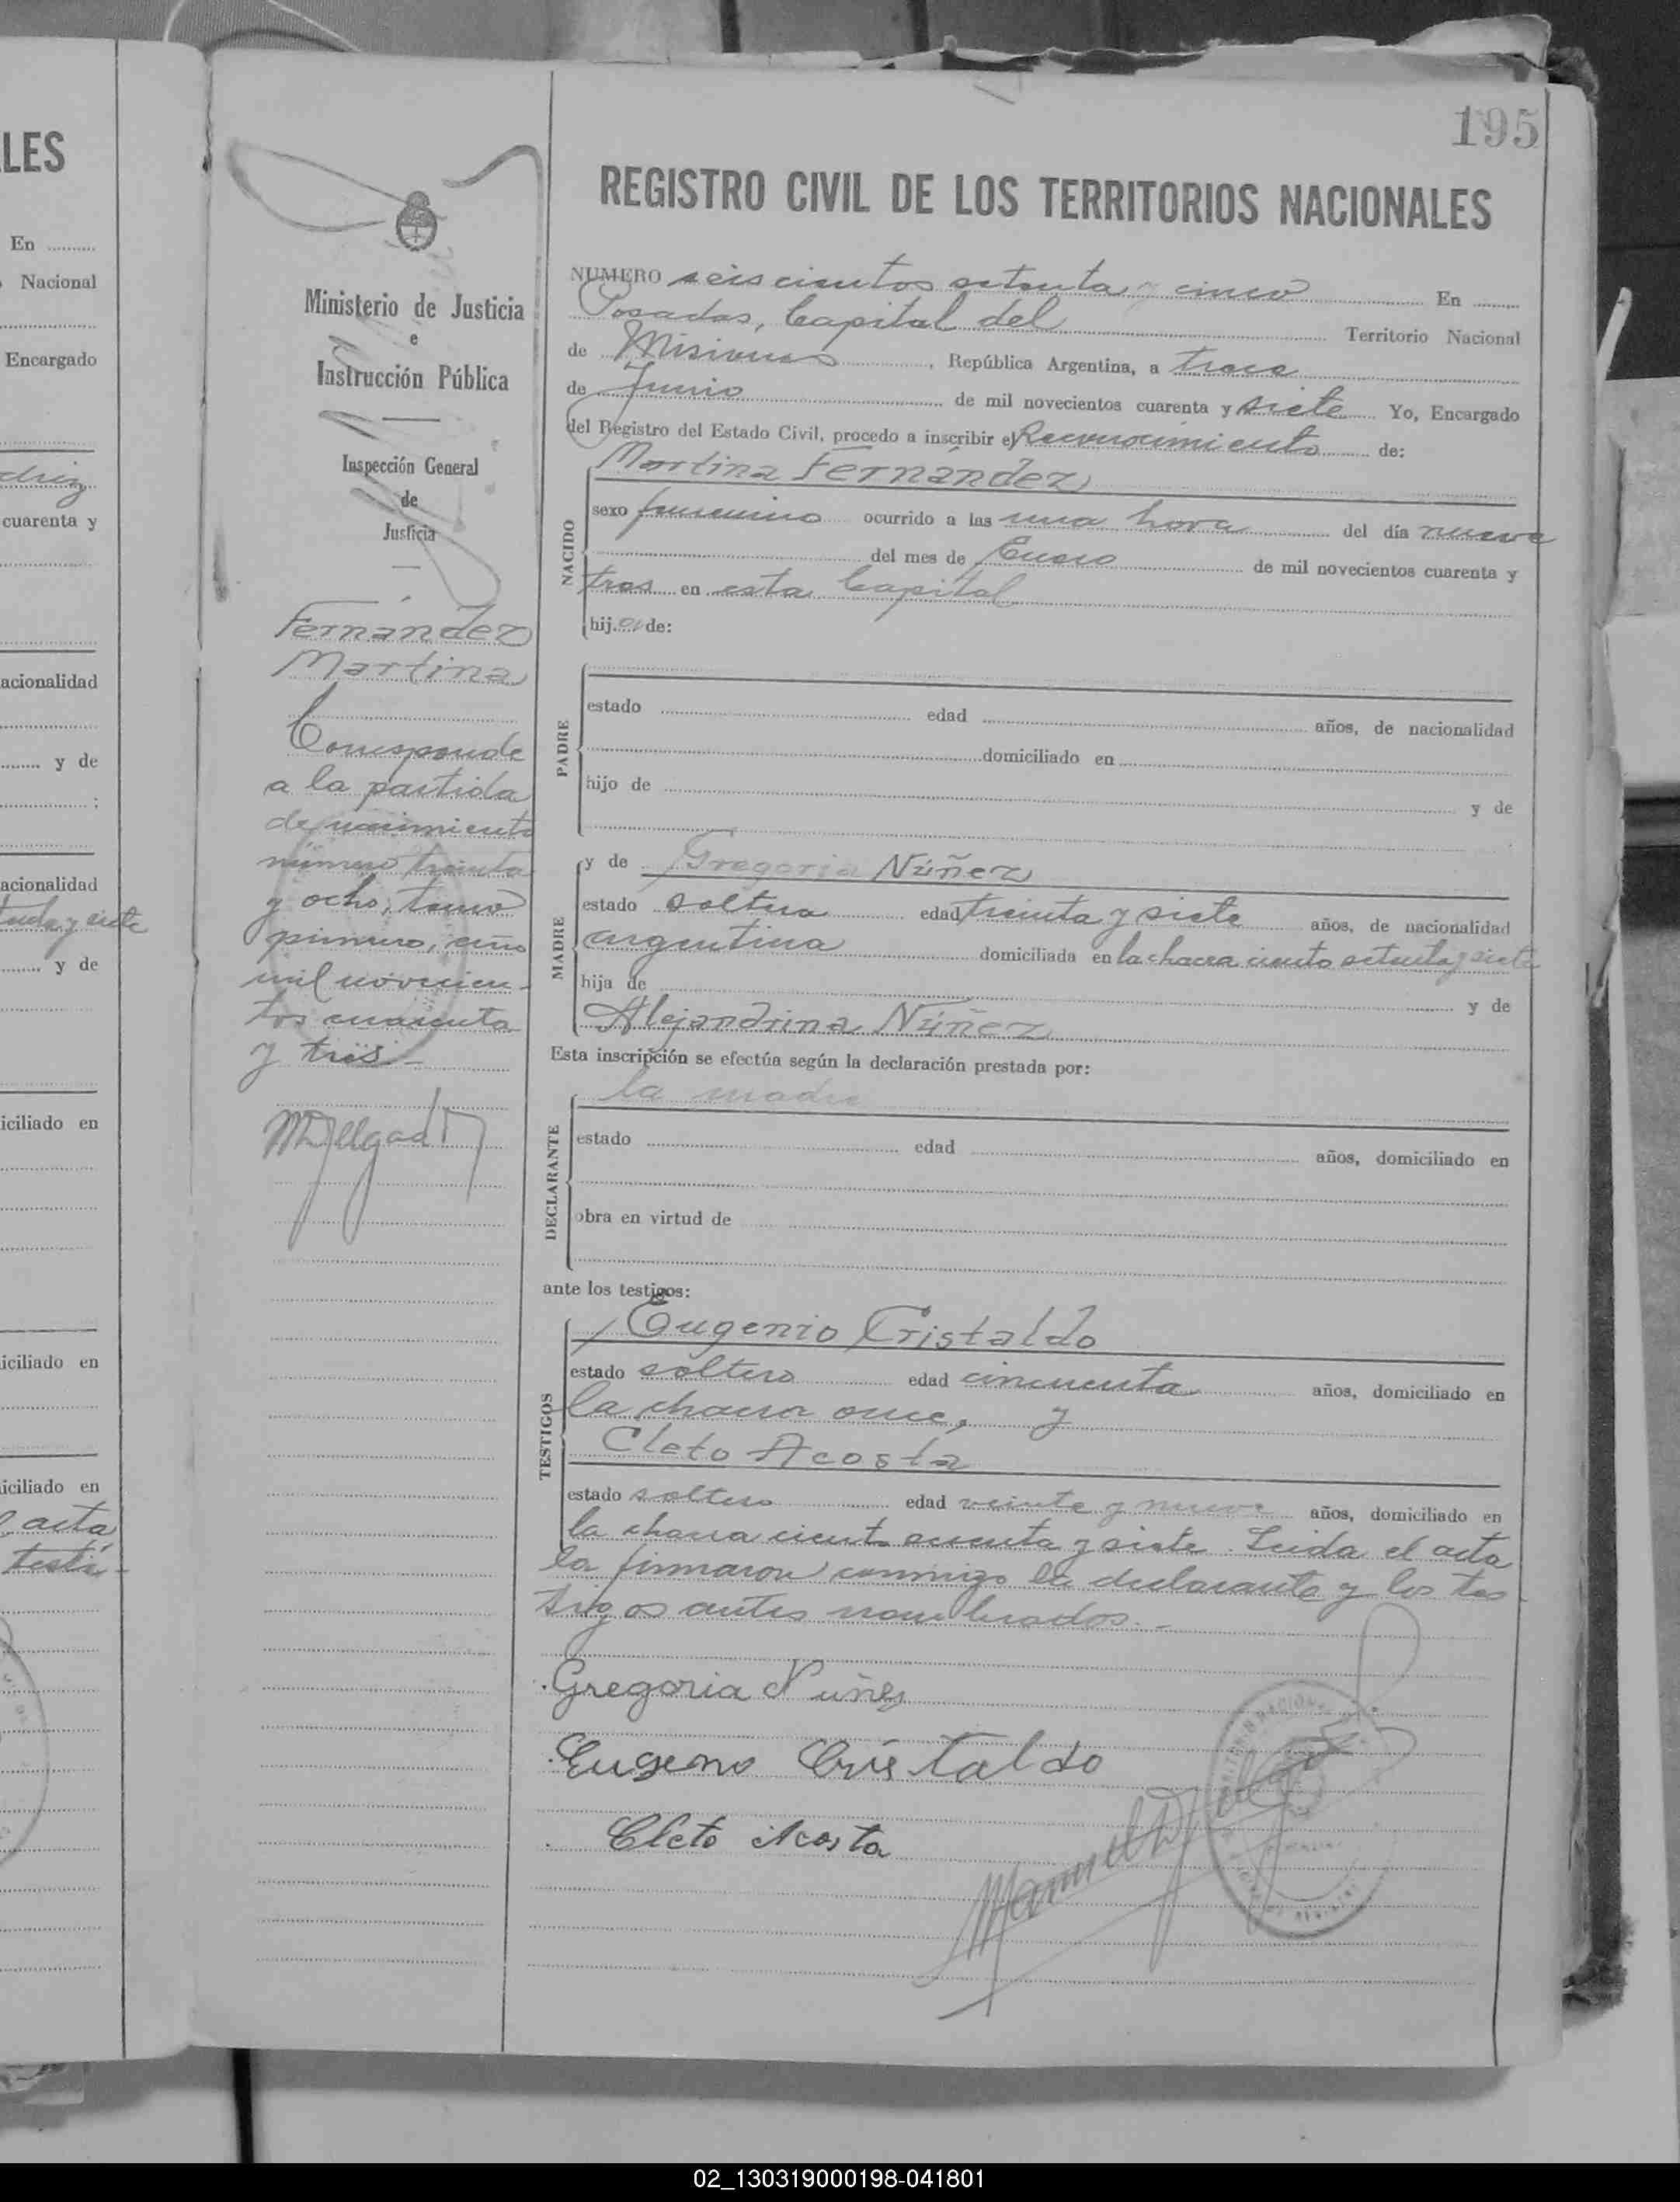 LES
En
Nacional
Encargado
cuarenta y
acionalidad
y de
;
acionalidad
y siete
y de
iciliado en
iciliado en
iciliado en
acta
testi-
195
Ministerio de Justicia
e
Instrucción Pública
Inspección General
de
Justicia
Fernández
Martina
Corresponde
a la partida
de nacimiento
número treinta
y ocho, tomo
primero, año
mil novecien-
tos cuarenta
y tres.-
REGISTRO CIVIL DE LOS TERRITORIOS NACIONALES
NUMERO seiscientos setenta y cinco En
Posadas, Capital del Territorio Nacional
de Misiones, República Argentina, a trece
de Junio de mil novecientos cuarenta y siete Yo, Encargado
del Registro del Estado Civil, procedo a inscribir el Reconocimiento de:
Martina Fernández
NACIDO
sexo femenino ocurrido a las una hora del día nueve
del mes de Enero de mil novecientos cuarenta y
tres en esta Capital
hij a de:
PADRE
estado edad años, de nacionalidad
domiciliado en
hijo de y de
MADRE
y de Gregoria Núñez
estado soltera edad treinta y siete años, de nacionalidad
argentina domiciliada en la chacra ciento setenta y siete
hija de y de
Alejandrina Núñez
Esta inscripción se efectúa según la declaración prestada por:
la madre
DECLARANTE
estado edad años, domiciliado en
obra en virtud de
ante los testigos:
TESTIGOS
Eugenio Cristaldo
estado soltero edad cincuenta años, domiciliado en
la chacra once, y
Cleto Acosta
estado soltero edad veinte y nueve años, domiciliado en
la chacra ciento y siete. Leida el acta
la firmaron conmigo la declarante y los tes
tigos antes nombrados.-
Gregoria Nuñes
Eugenio Cristaldo
Cleto Acosta
Manuel
02_130319000198-041801